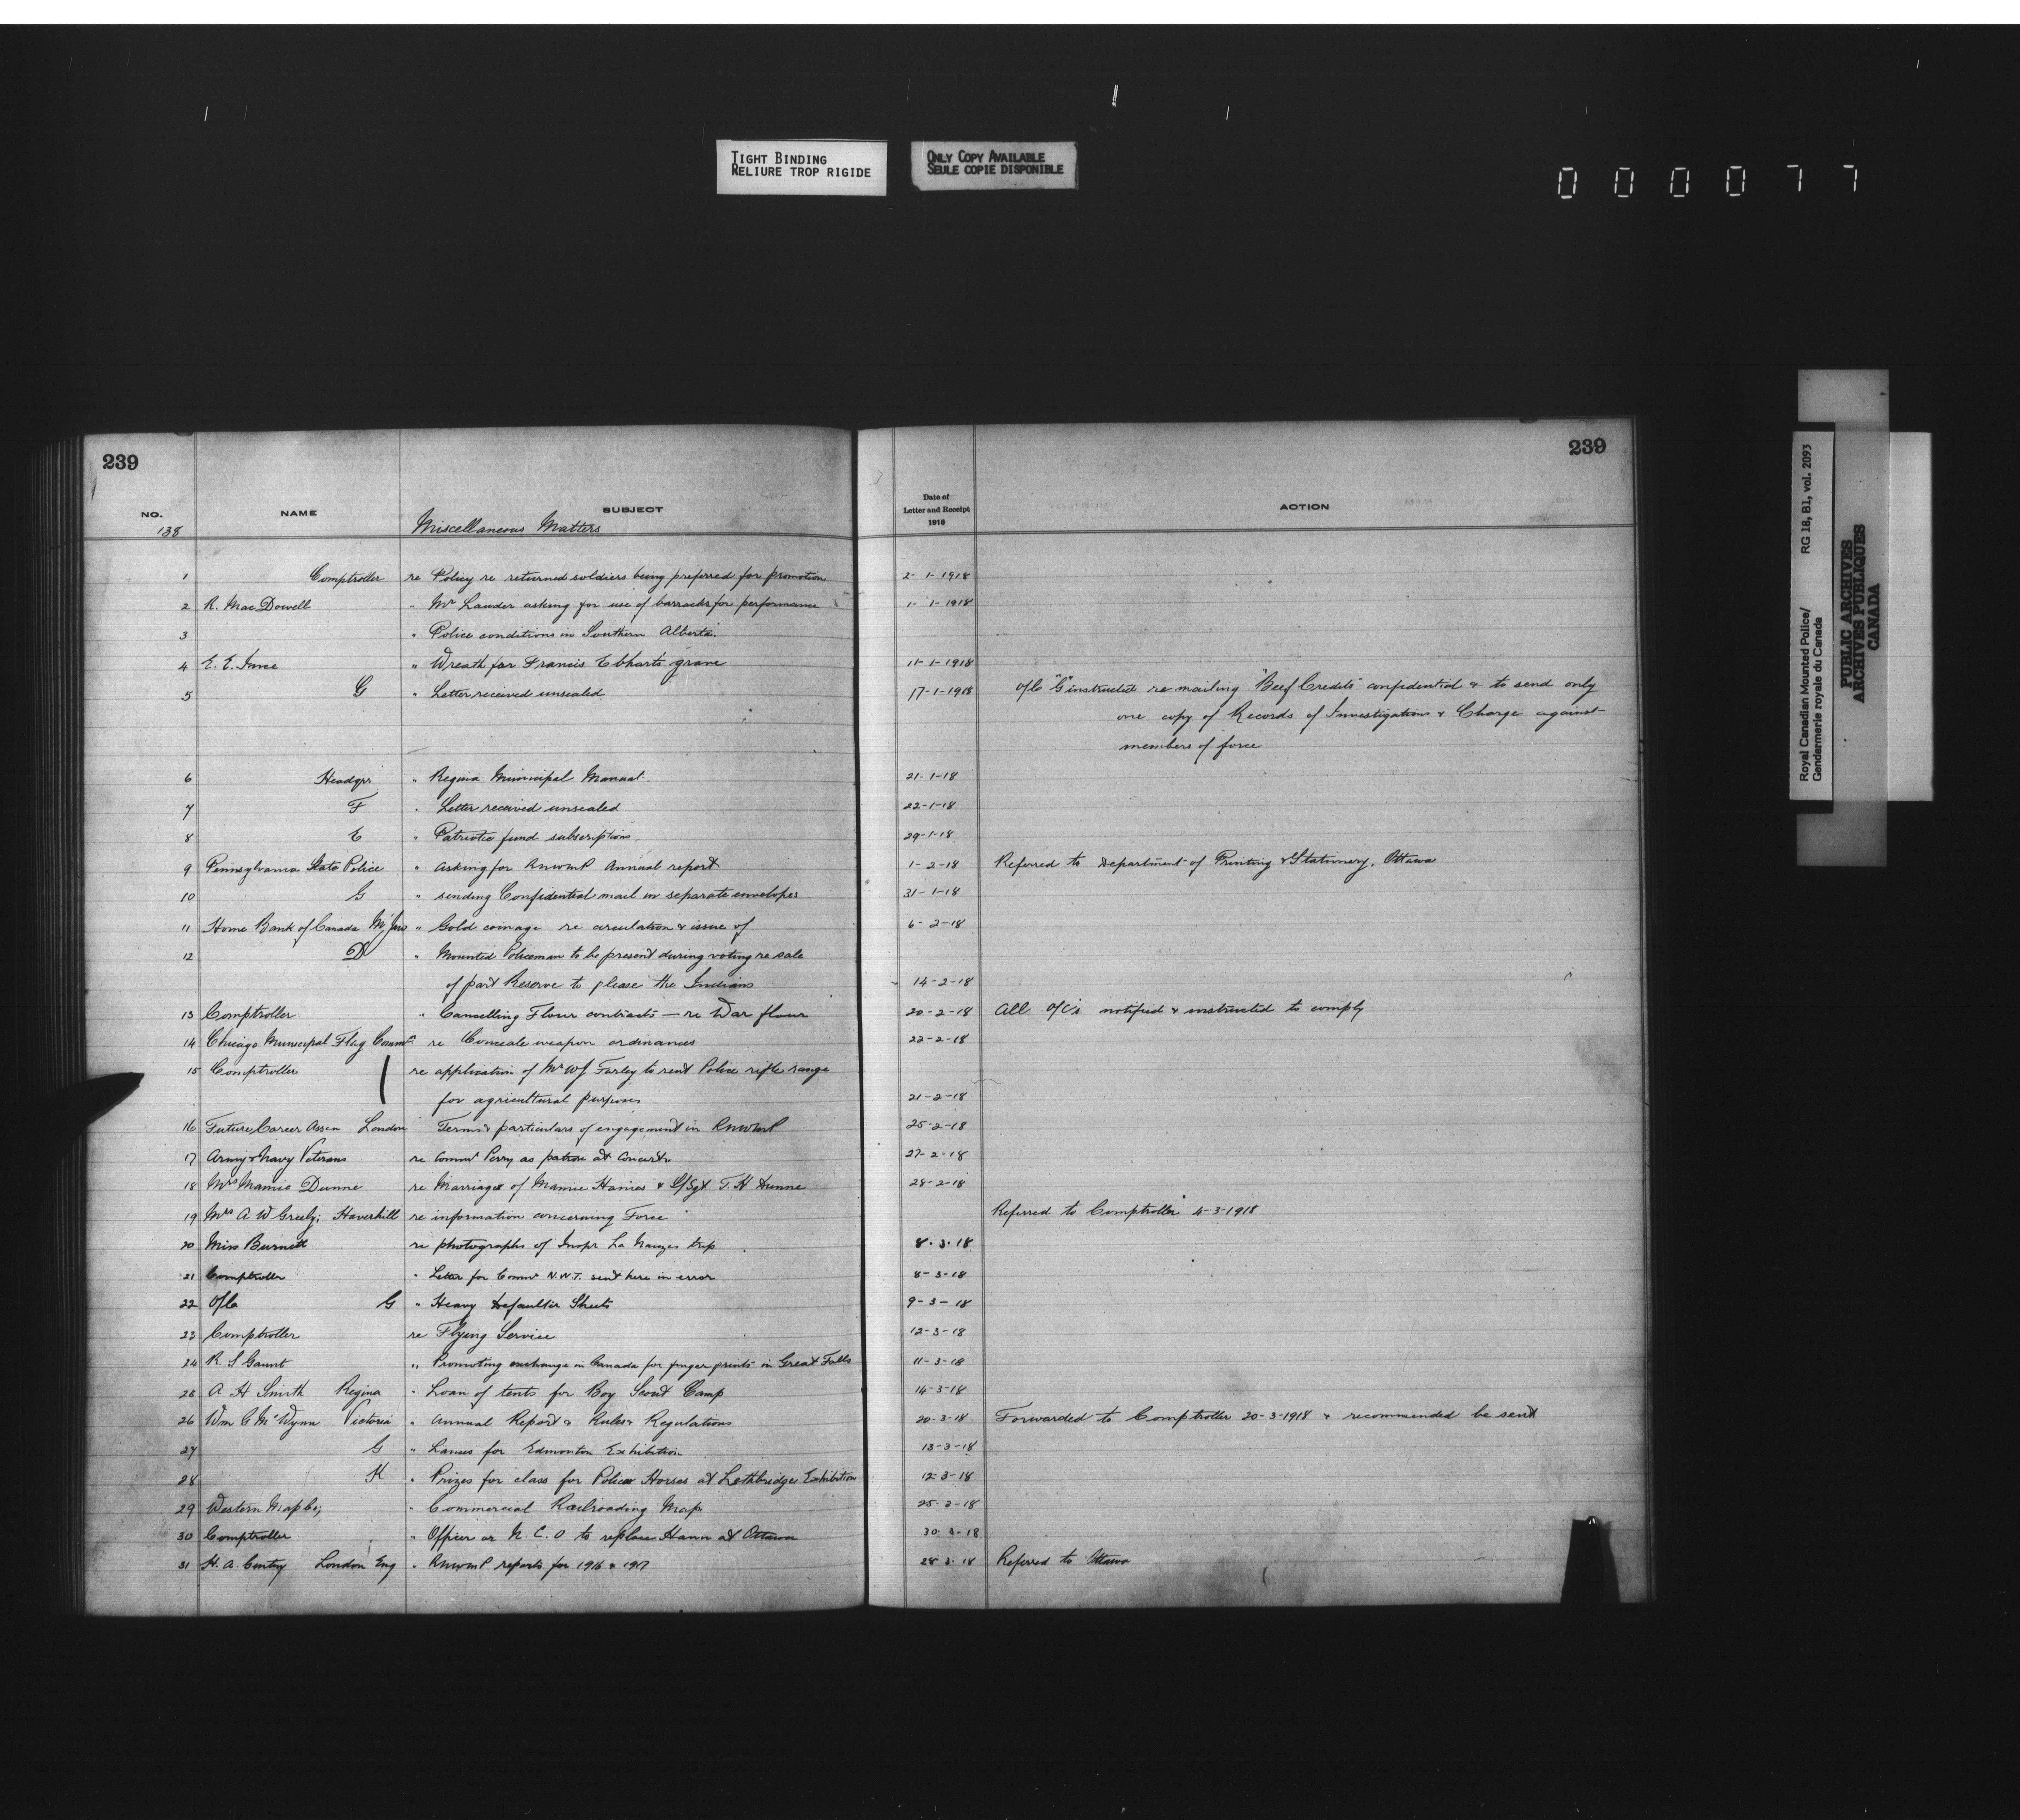 TIGHT BINDING
RELIURE TROP RIGIDE
ONLY COPY AVAILABLE
SEULE COPIE DISPONIBLE
000077
Royal Canadian Mounted Police/
Gendarmerie royale du Canada
RG 18, B1, vol. 2093
PUBLIC ARCHIVES
ARCHIVES PUBLIQUES
CANADA
239 239
NO. NAME SUBJECT Date of Letter and Receipt 1918 ACTION
138 Miscellaneous Matters
1 Comptroller re Policy re returned soldiers being preferred for promotion 2-1-1918
2 R. MacDowell " Mr Lauder asking for use of barracks for performance 1-1-1918
3 " Police conditions in Southern Alberta.
4 E. E. " Wreath for Francis grave 11-1-1918
5 G " Letter received unsealed 17-1-1918 O/C "G" instructed re mailing "Beef Credits" confidential & to send only
one copy of Records of Investigations & Charge against
members of force
6 Headqrs " Regina Municipal Manual. 21-1-18
7 F " Letter received unsealed 22-1-18
8 E " Patriotic fund subscriptions 29-1-18
9 Pennsylvania State Police " asking for RNWMP Annual report 1-2-18 Referred to Department of Printing & Stationery, Ottawa
10 G " sending Confidential mail in separate envelopes 31-1-18
11 Home Bank of Canada M/Jaw " Gold coinage re circulation & issue of 6-2-18
12 D " Mounted Policeman to be present during voting re sale
of part Reserve to please the Indians 14-2-18
13 Comptroller " Cancelling Flour contracts — re War flour 20-2-18 All O/C's notified & instructed to comply
14 Chicago Municipal Flag Commn re Conceale weapon ordinances 22-2-18
15 Comptroller re application of Mr W J Farley to rent Police rifle range
for agricultural purposes 21-2-18
16 Future Career Assn London Terms & particulars of engagement in RNWMP 25-2-18
17 Army & Navy Veterans re Commr Perry as patron at Concert 27-2-18
18 Mrs Mamie Dunne re Marriage of Mamie Haines & S/Sgt T. H Dunne 28-2-18
19 Mrs A W Greely; Haverhill re information concerning Force Referred to Comptroller 4-3-1918
20 Miss Burnett re photographs of Inspr La Nauzes trip 8.3.18
21 Comptroller " Letter for Commr N.W.T. sent here in error 8-3-18
22 O/C G " Heavy Defaulter Sheets 9-3-18
23 Comptroller re Flying Service 12-3-18
24 R. S Gaunt " Promoting exchange in Canada for finger prints in Great Falls 11-3-18
25 A H Smith Regina " Loan of tents for Boy Scout Camp 14-3-18
26 Wm G McWynn Victoria " Annual Report & Rules & Regulations 20-3-18 Forwarded to Comptroller 20-3-1918 & recommended be sent
27 G " Lances for Edmonton Exhibition 13-3-18
28 K " Prizes for class for Police Horses at Lethbridge Exhibition 12-3-18
29 Western Map Co; " Commercial Railroading Map 25-3-18
30 Comptroller " Officer or N.C.O to replace Hann at Ottawa 30-3-18
31 H. A. London Eng " RNWMP reports for 1916 & 1917 28-3-18 Referred to Ottawa